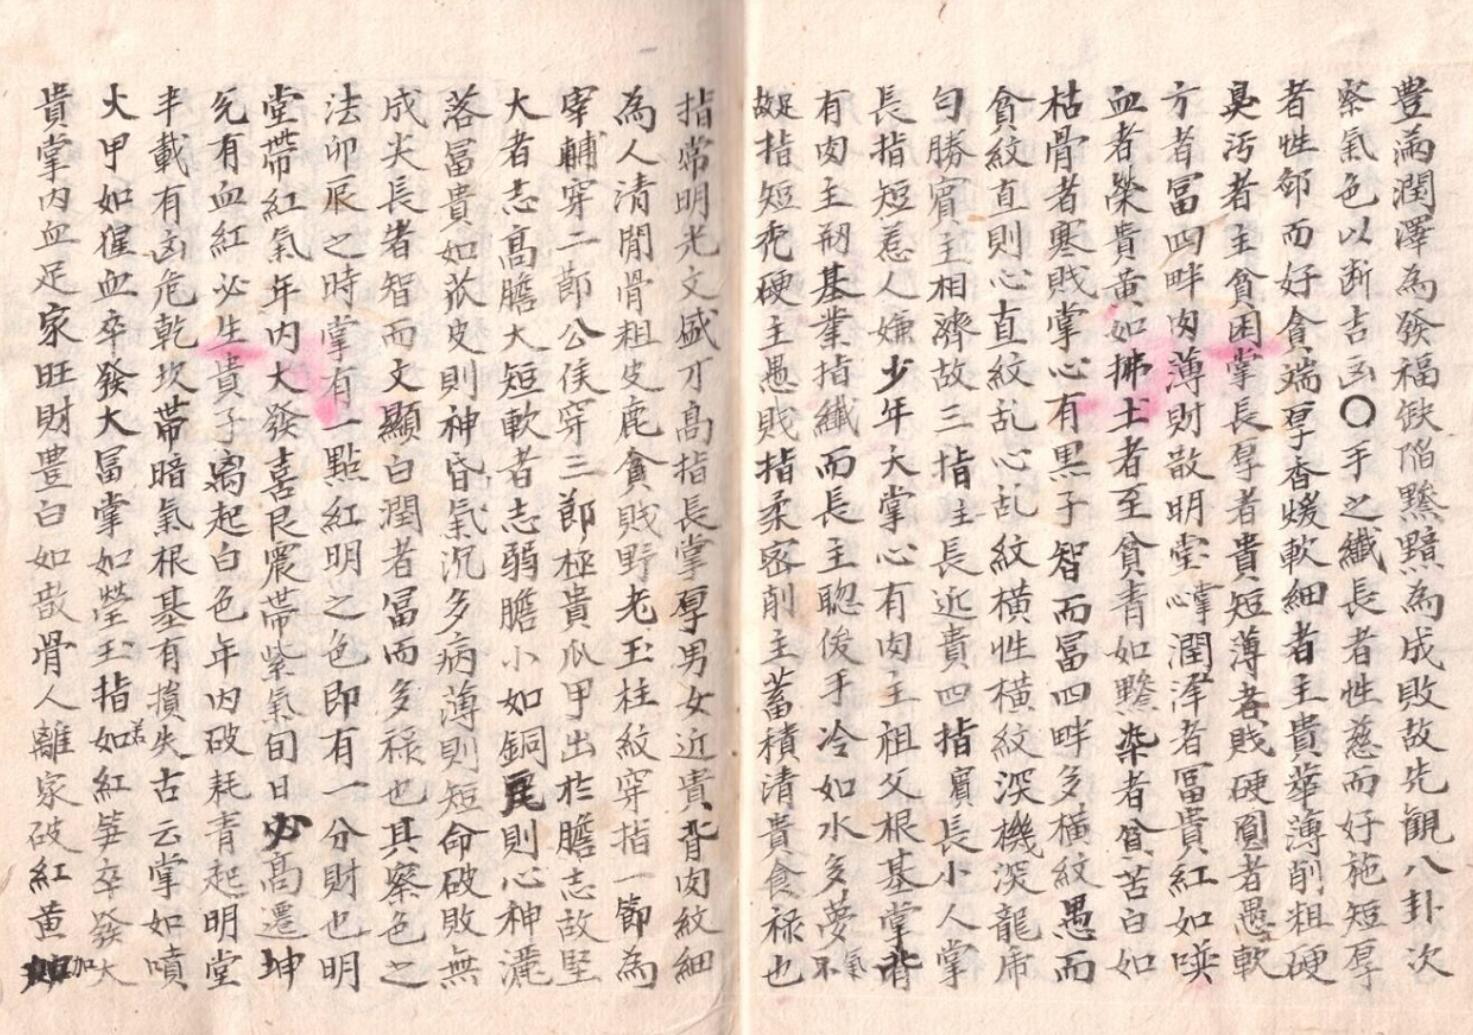 豊滿潤澤為發福缺陷黲黯為成敗故先觀八卦次
察氣色以断吉凶〇手之纖長者性慈而好施短厚
者性鄙而好貪端厚香煖軟細者主貴華薄削粗硬
臭污者主貧困掌長厚者貴短薄者賎硬圓者愚軟
方者冨四畔肉薄財散明堂掌心潤澤者冨貴紅如噀
血者榮貴黄如拂土者至貧青如黲染者貧苦白如
枯骨者寒賎掌心有黒子智而冨四畔多橫紋愚而
貪紋直則心直紋乱心乱紋橫性橫紋深機深龍虎
句勝賓主相濟故三指主長近貴四指賔長小人掌
長指短惹人嫌少年大掌心有肉主祖父根基掌背
有肉主刱基業指纖而長主聰俊手冷如水多夢氣不
足故指短禿硬主愚賎指柔宻削主蓄積清貴食禄也
指常明光文盛才高指長掌厚男女近貴背肉紋細
為人清閒骨粗皮麁貧賎野老玉柱紋穿指一節為
宰輔穿二莭公侯穿三節極貴瓜甲出於膽志故堅
大者志高膽大短軟者志弱膽小如銅瓦則心神灑
落冨貴如茨皮則神昏氣沉多病薄則短命破敗無
成尖長者智而文顯白潤者冨而多禄也其察色之
法卯辰之時掌有一點紅明之色即有一分財也明
堂帶紅氣年内大發喜艮震帶紫氣旬日必高遷坤
兌有血紅必生貴子离起白色年内破耗青起明堂
半載有凶危乾坎帶暗氣根基有損失古云掌如噴
火甲如猩血卒發大冨掌如瑩玉指如若紅笋卒發大
貴掌内血足家旺財豊白如散骨人離家破紅黄加